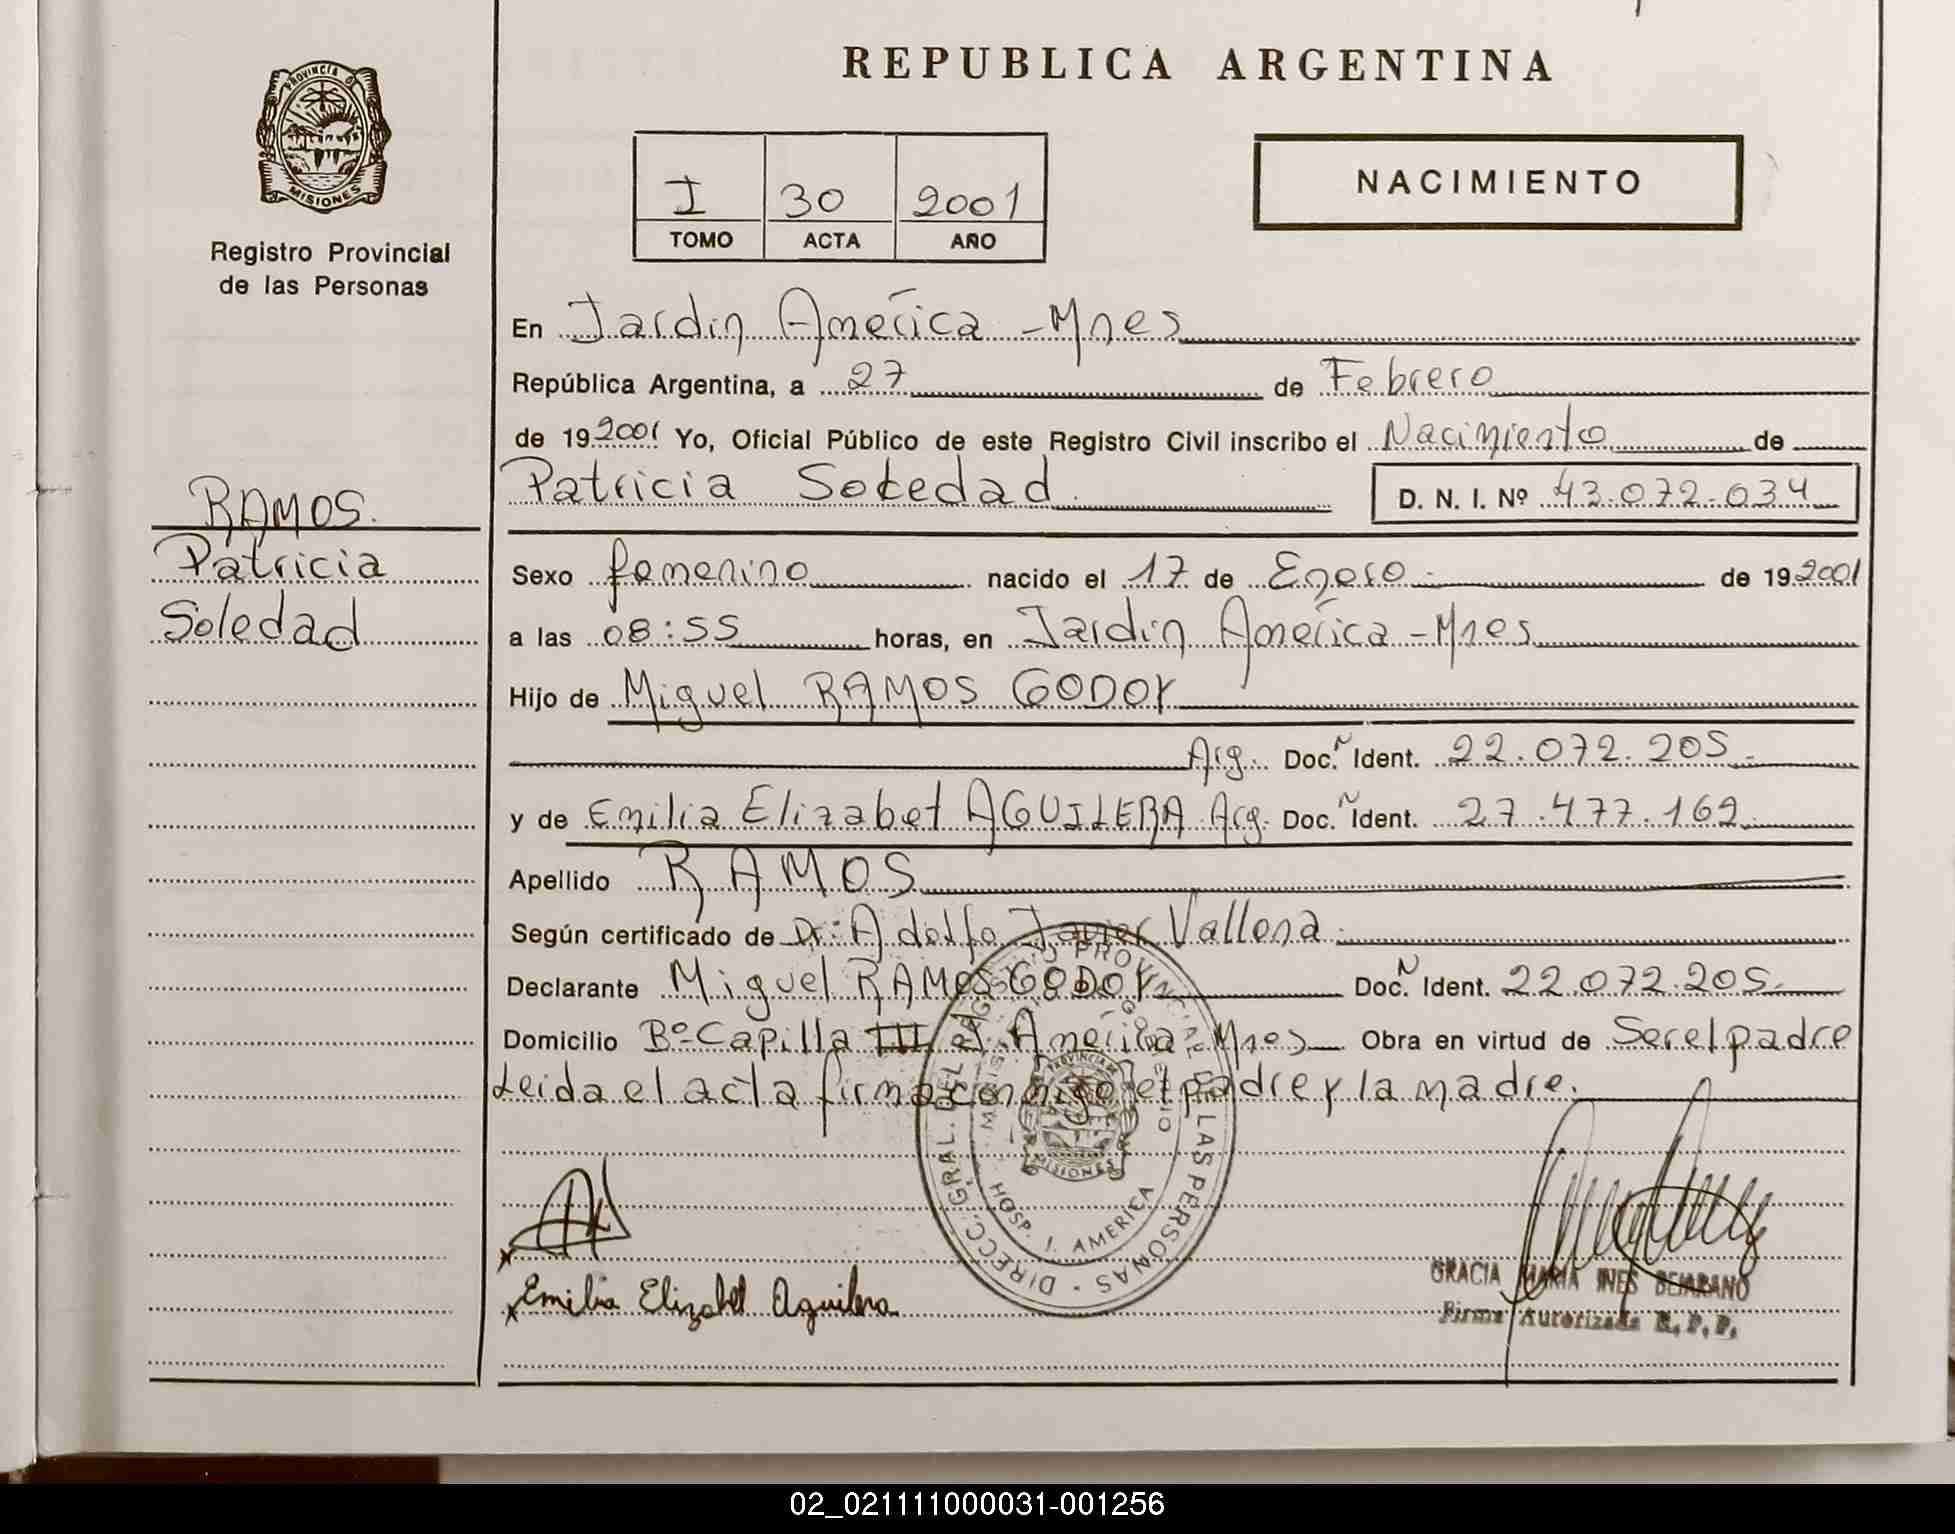 REPUBLICA ARGENTINA
PROVINCIA D
MISIONES
Registro Provincial
de las Personas
I 30 2001
TOMO ACTA AÑO
NACIMIENTO
En Jardin América - Mnes
República Argentina, a 27 de Febrero
de 19 2001 Yo, Oficial Público de este Registro Civil inscribo el Nacimiento de
Patricia Soledad D. N. I. Nº 43.072.034
RAMOS.
Patricia
Soledad
Sexo femenino nacido el 17 de Enero de 19 2001
a las 08:55 horas, en Jardin América - Mnes
Hijo de Miguel RAMOS GODOY
Arg. Doc. N Ident. 22.072.205.-
y de Emilia Elizabet AGUILERA Arg. Doc. N Ident. 27.477.162
Apellido RAMOS
Según certificado de Dr. Adolfo Javier Vallona
Declarante Miguel RAMOS GODOY Doc. N Ident. 22.072.205.
Domicilio Bº Capilla III J. América Mnes Obra en virtud de Ser el padre
Leida el acta firma conmigo el padre y la madre.
DIRECC. GRAL. DEL REGISTRO PROVINCIAL DE LAS PERSONAS
MISIONES
HOSP. J. AMERICA
x
x Emilia Elizabet Aguilera
GRACIA MARIA INES BEJARANO
Firma Autorizada R.P.P.
02_021111000031-001256